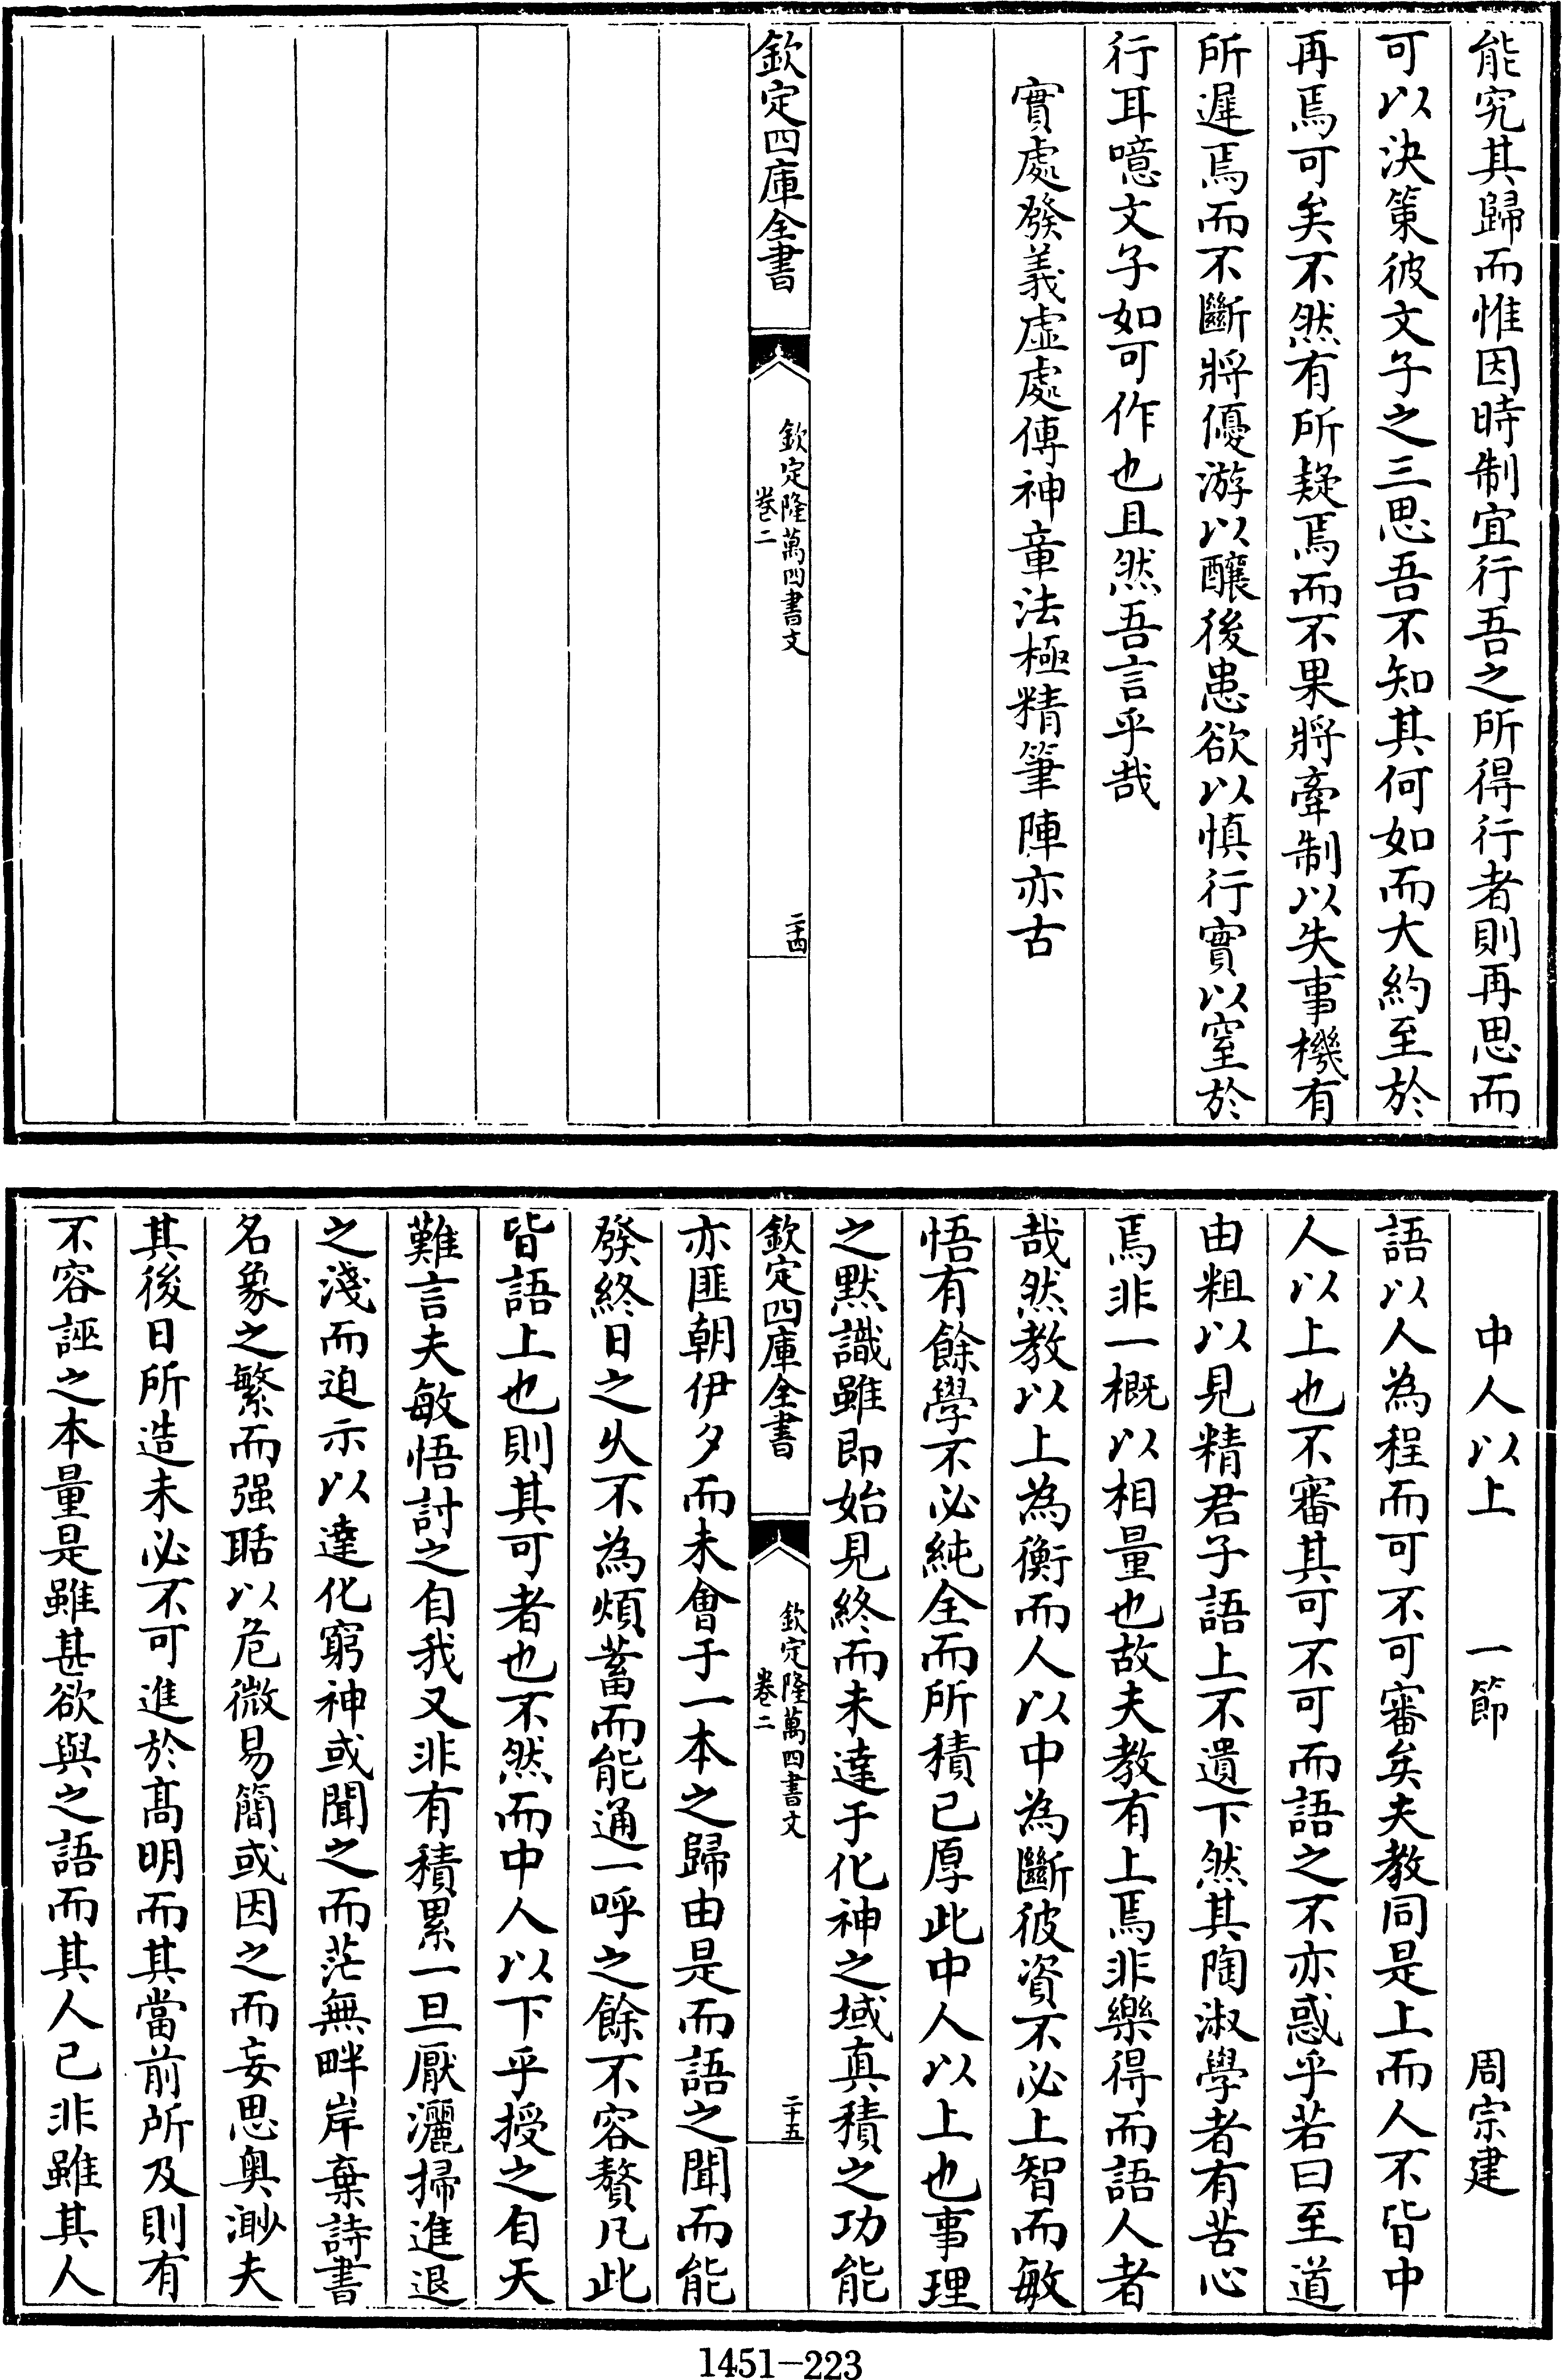 能究其歸而惟因時制宜行吾之所得行者則再思而
可以決策彼文子之三思吾不知其何如而大約至於
再焉可矣不然有所疑焉而不果將牽制以失事機有
所遲焉而不斷將優游以釀後患欲以慎行實以窒於
行耳噫文子如可作也且然吾言乎哉
實處發義虛處傳神章法極精筆陣亦古
欽定四庫全書
欽定隆萬四書文
卷二
二十四
中人以上 一節 周宗建
語以人為程而可不可審矣夫教同是上而人不皆中
人以上也不審其可不可而語之不亦惑乎若曰至道
由粗以見精君子語上不遺下然其陶淑學者有苦心
焉非一概以相量也故夫教有上焉非樂得而語人者
哉然教以上為衡而人以中為斷彼資不必上智而敏
悟有餘學不必純全而所積已厚此中人以上也事理
之默識雖即始見終而未達于化神之域真積之功能
欽定四庫全書
欽定隆萬四書文
卷二
二十五
亦匪朝伊夕而未會于一本之歸由是而語之聞而能
發終日之久不為煩蓄而能通一呼之餘不容贅凡此
皆語上也則其可者也不然而中人以下乎授之自天
難言夫敏悟討之自我又非有積累一旦厭灑掃進退
之淺而迫示以達化窮神或聞之而茫無畔岸棄詩書
名象之繁而强聒以危微易簡或因之而妄思奥渺夫
其後日所造未必不可進於髙明而其當前所及則有
不容誣之本量是雖甚欲與之語而其人已非雖其人
1451-223